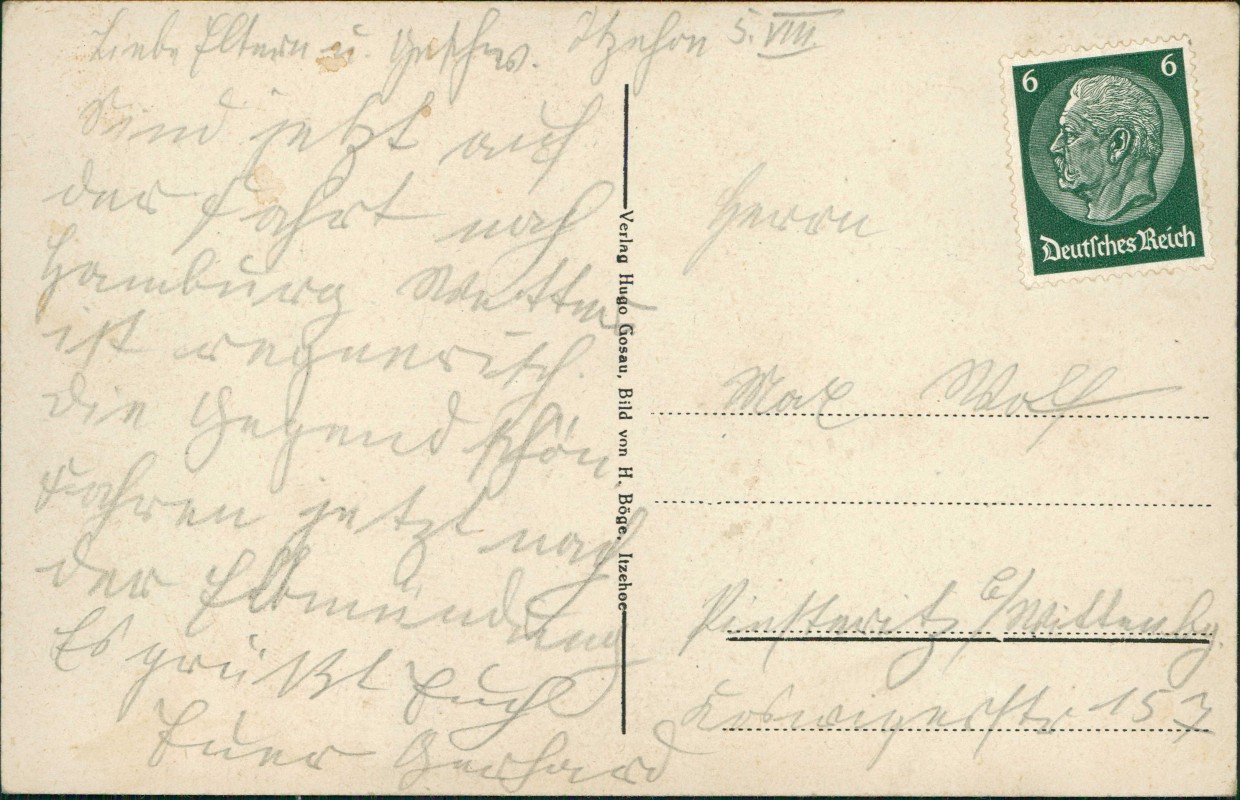 Liebe Eltern u. Geschw. Itzehoe 5. VIII
Sind jetzt auf
der Fahrt nach
Hamburg Wetter
ist regnerisch.
Die Gegend schön
Fahren jetzt nach
der Elbmündung
Es grüßt Euch
Euer Gerhard
Verlag Hugo Gosau, Bild von H. Böge, Itzehoe
6 6
Deutsches Reich
Herrn
Max Wolf
Piesteritz b/Wittenbg.
Koswigerstr 157